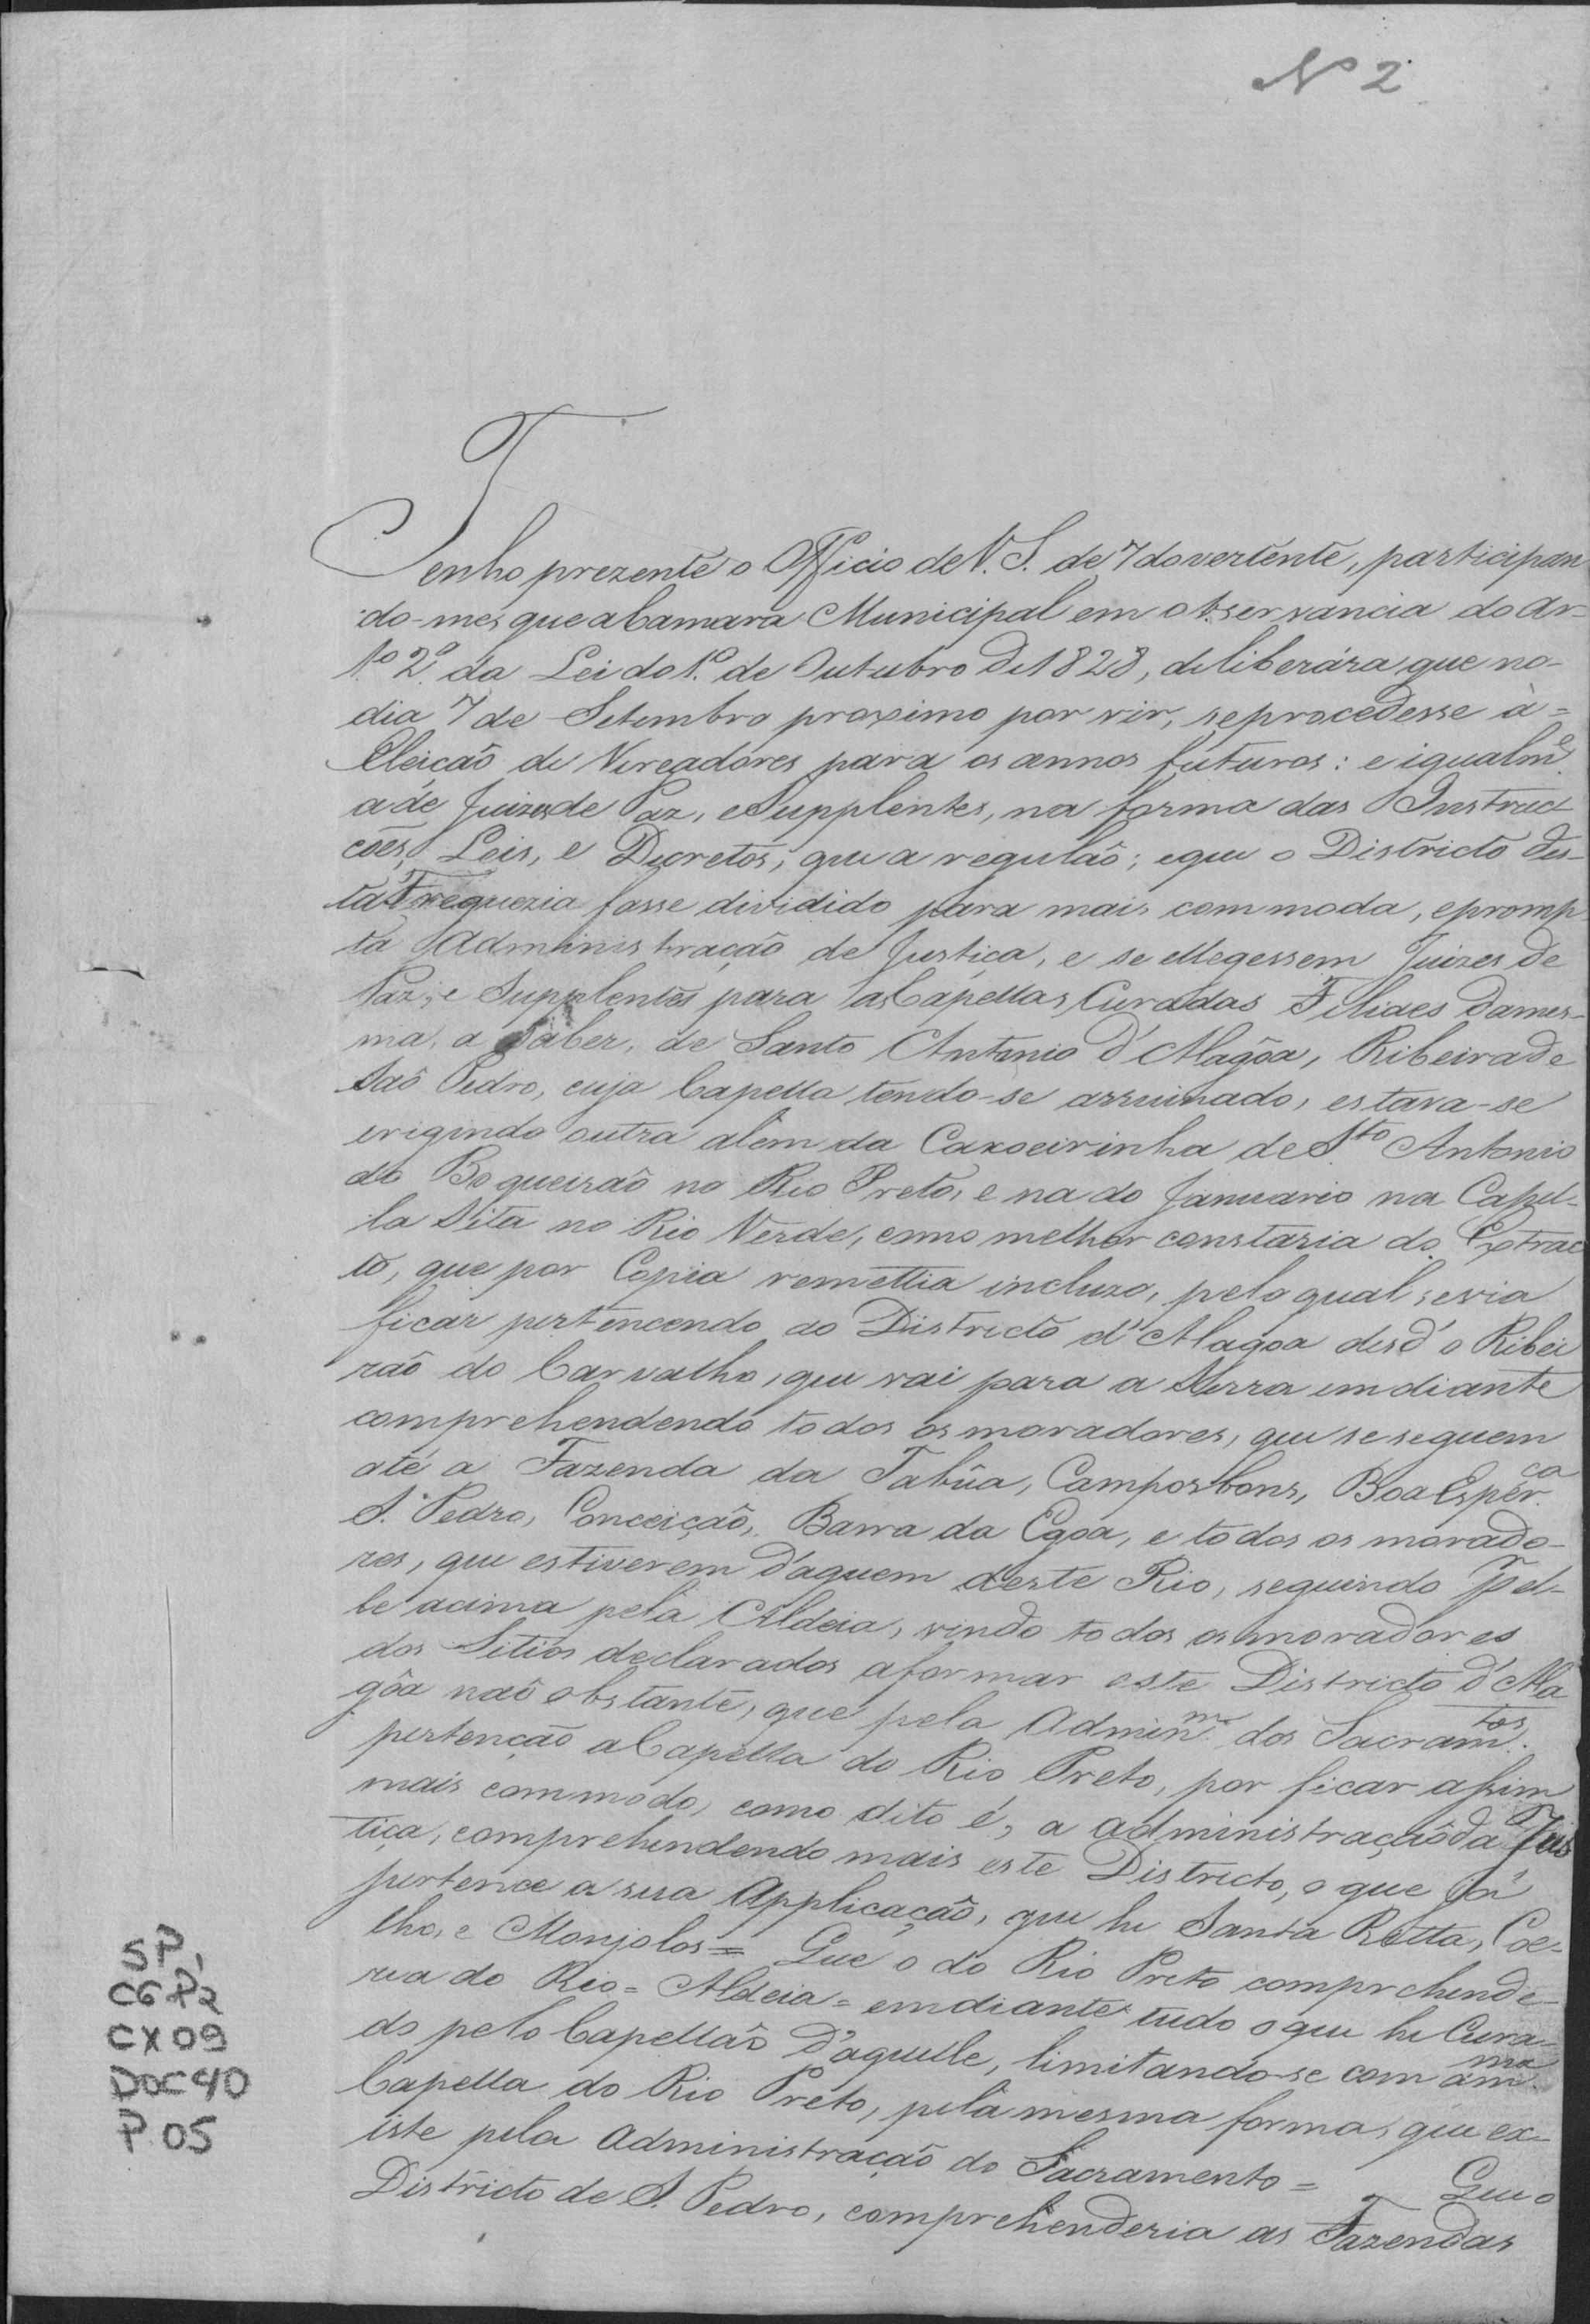 Nº 2
Tenho prezente o Officio de V. S. de 7 do vertente, participan
do-me, que a Camara Municipal em observancia do Ar-
tº 2º da Lei do 1º de Outubro de 1828, deliberára que no
dia 7 de Setembro proximo por vir, se procedesse à =
Eleição de Vereadores para os annos futuros: e igualmẽ
a de Juizes de Paz, e Supplentes, na forma das Instruc
ções, Leis, e Decretos, que a regulão; e que o Districto des-
ta Freguezia fosse dividido para mais commoda, e promp
ta Administração de Justiça, e se ellegessem Juizes de
Paz, e Supplentes para as Capellas Curadas Filiaes da mes-
ma, a Saber, de Santo Antonio d'Alagôa, Ribeira de
Saõ Pedro, cuja Capella tendo-se arruinado, estava-se
erigindo outra alêm da Caxoeirinha de Sto Antonio
do Boqueiraõ no Rio Preto, e na do Januario na Capel-
la Sita no Rio Verde, como melhor constaria do Extrac
to, que por Copia remettia incluzo, pelo qual seria
ficar pertencendo ao Districto d'Alagoa desd'o Ribei
raõ do Carvalho, que vai para a Serra em diante
comprehendendo todos os moradores, que se seguem
até a Fazenda da Tabûa, Campos bons, Boa Esperca
S. Pedro, Conceição, Barra da Egoa, e todos os morado-
res, que estiverem d'aquem deste Rio, seguindo pel-
le acima pela Aldeia, vindo todos os moradores
dos Sitios declarados a formar este Districto d'Ala
gôa naõ obstante, que pela Adminm dos Sacramtos
pertenção a Capella do Rio Preto, por ficar assim
mais commodo, como dito é, a administração da Jus
tiça, comprehendendo mais este Districto, o que já
pertence a sua Applicação, que he Santa Ritta, Coe-
lho, e Monjolos = Que o do Rio Preto comprehende-
ria do Rio = Aldeia = em diante tudo o que he Cura-
do pelo Capellaõ d'aquelle, limitando-se com a mma
Capella do Rio Preto, pela mesma forma, que ex-
iste pela Administração do Sacramento = Que o
Districto de S. Pedro, comprehenderia as Fazendas
SP,
CGP2
CX09
DOC40
P. 05